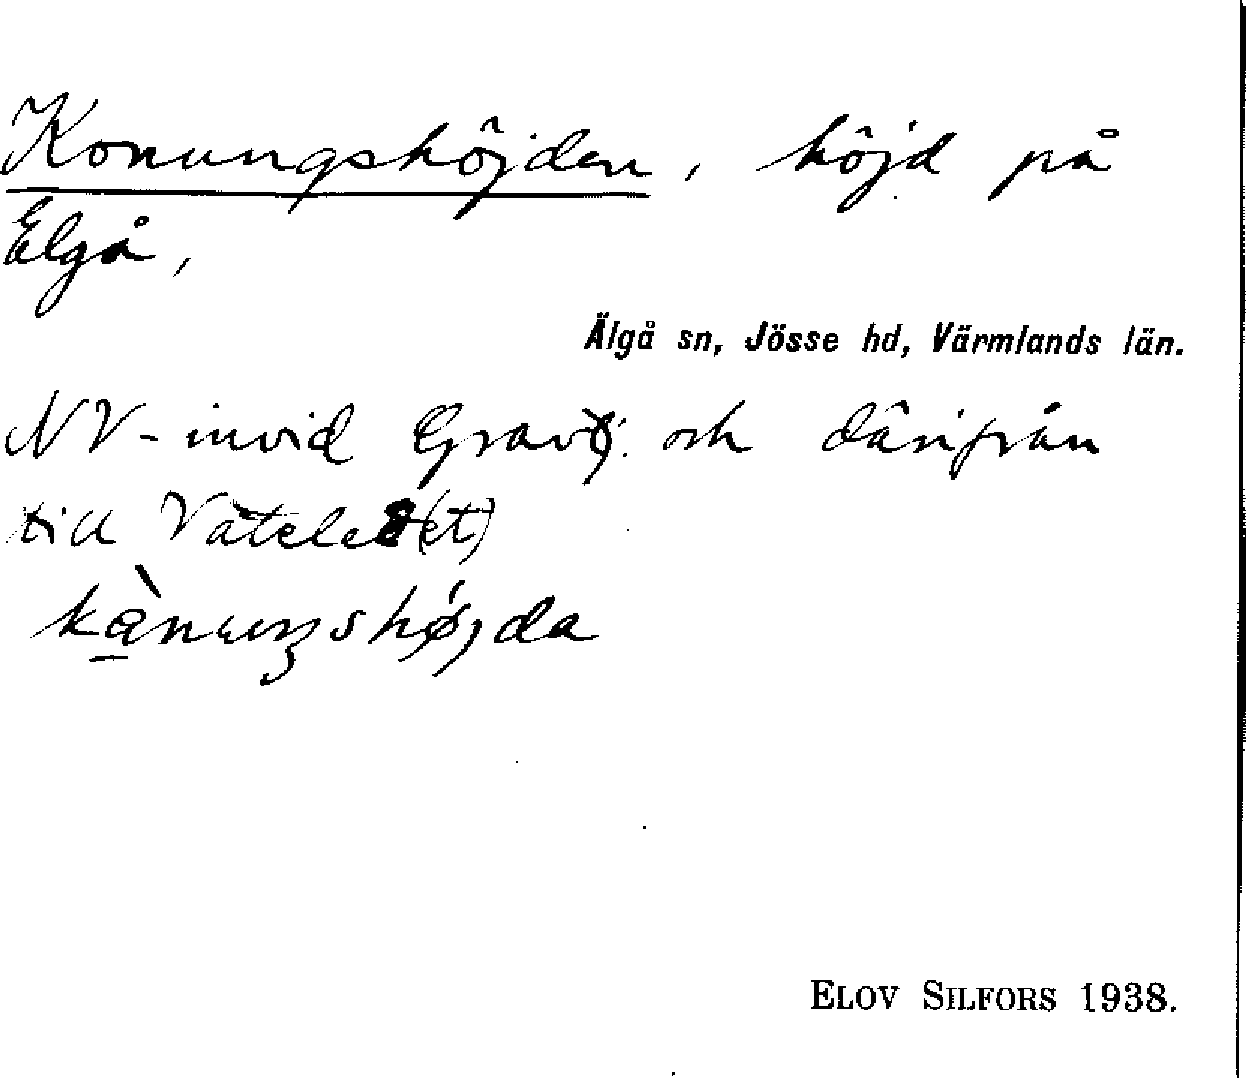 Konungshöjden, höjd på
Elgå,
Älgå sn, Jösse hd, Värmlands län.
NV-invid och därifrån
till
kànuŋshøjda
ELOV SILFORS 1938.